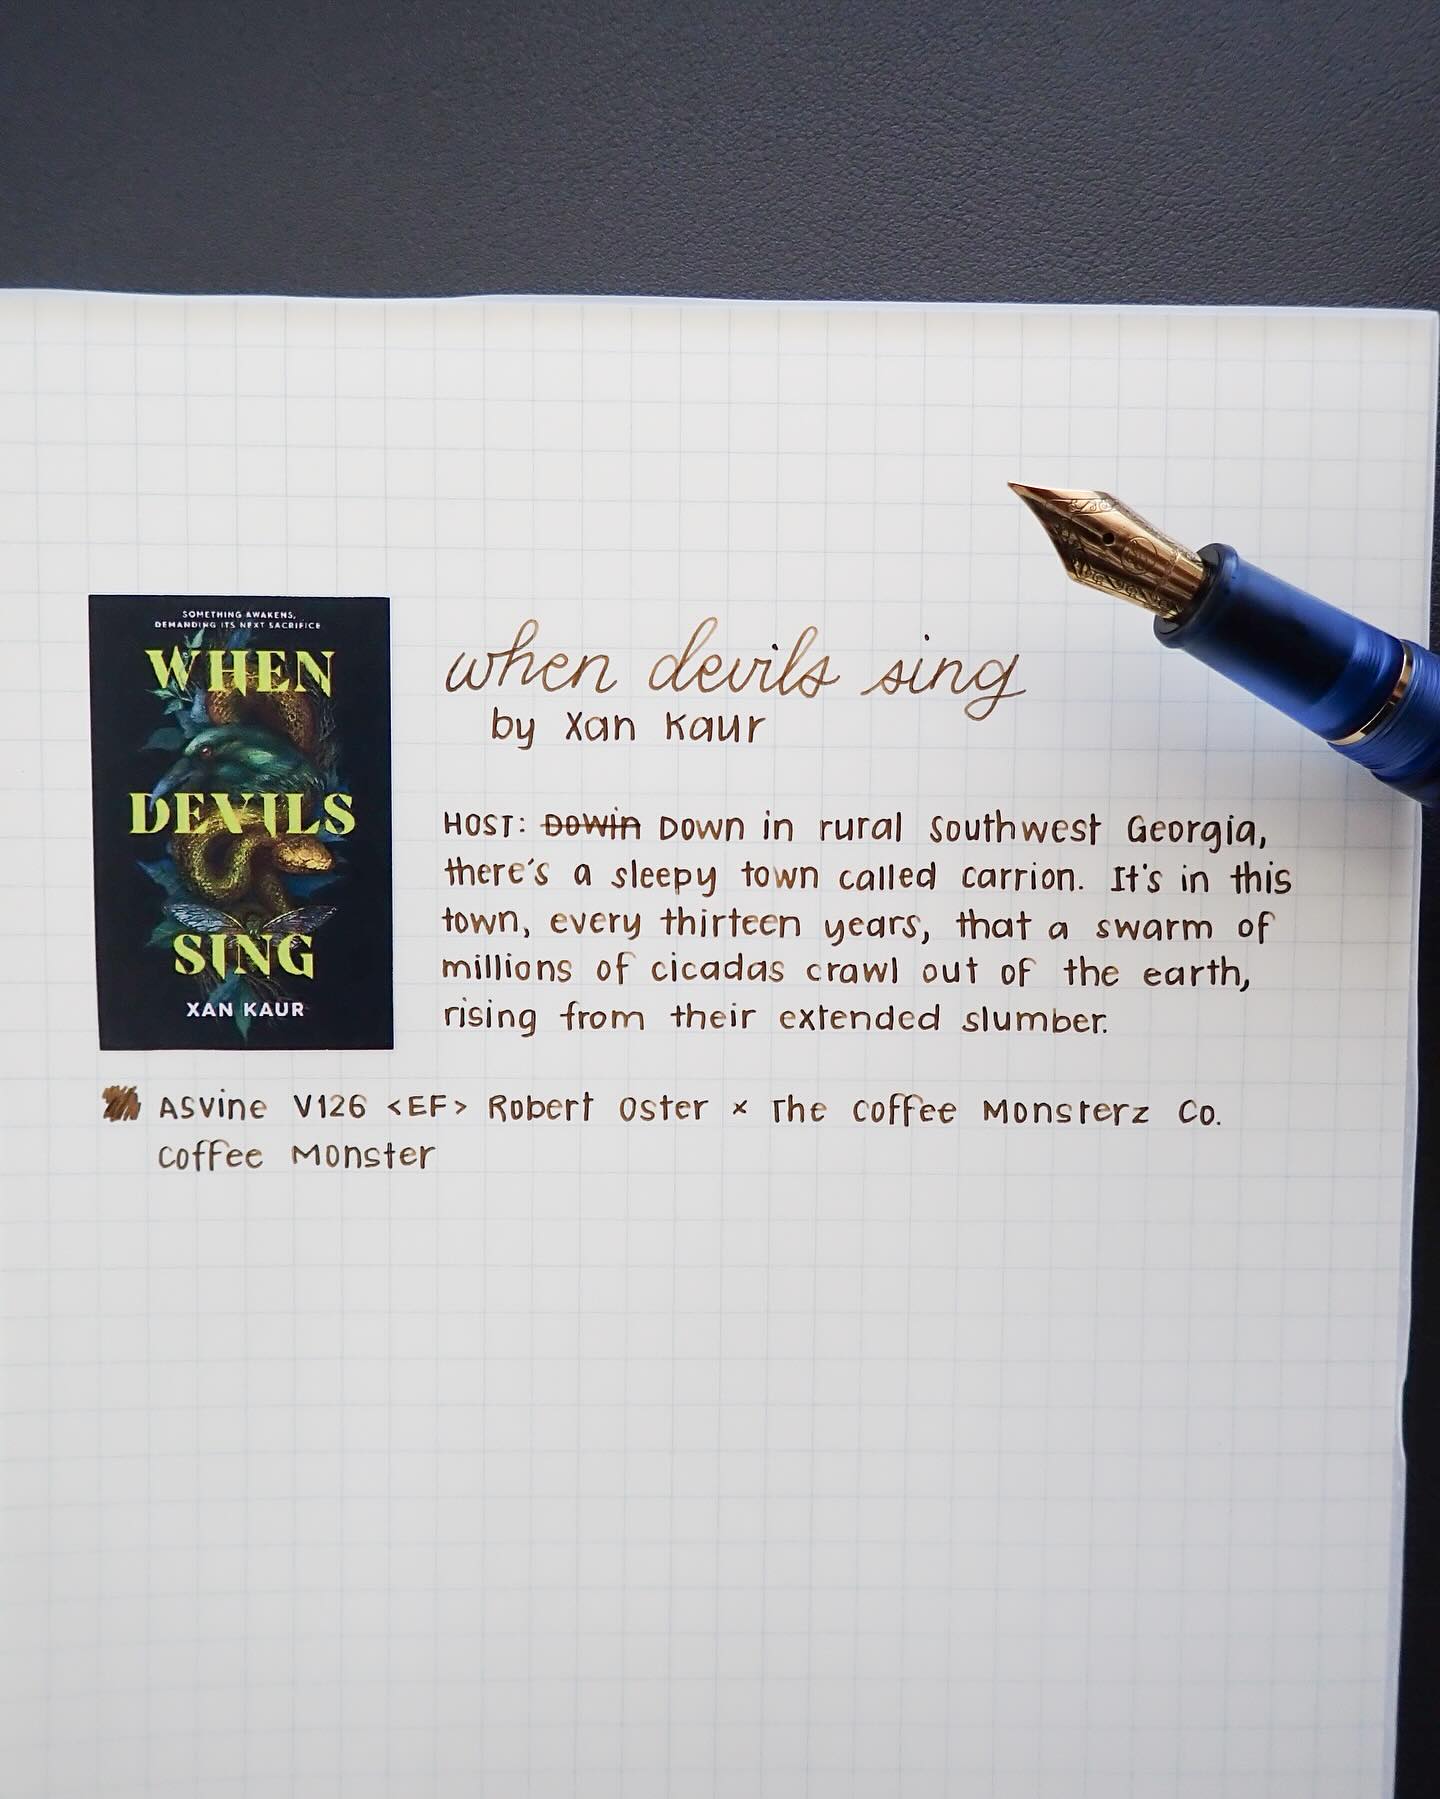 SOMETHING AWAKENS,
DEMANDING ITS NEXT SACRIFICE
WHEN
DEVILS
SING
XAN KAUR
when devils sing
by Xan Kaur
HOST: Dowin Down in rural southwest Georgia,
there's a sleepy town called carrion. It's in this
town, every thirteen years, that a swarm of
millions of cicadas crawl out of the earth,
rising from their extended slumber.
Asvine V126 <EF> Robert Oster × The Coffee Monsterz Co.
Coffee Monster